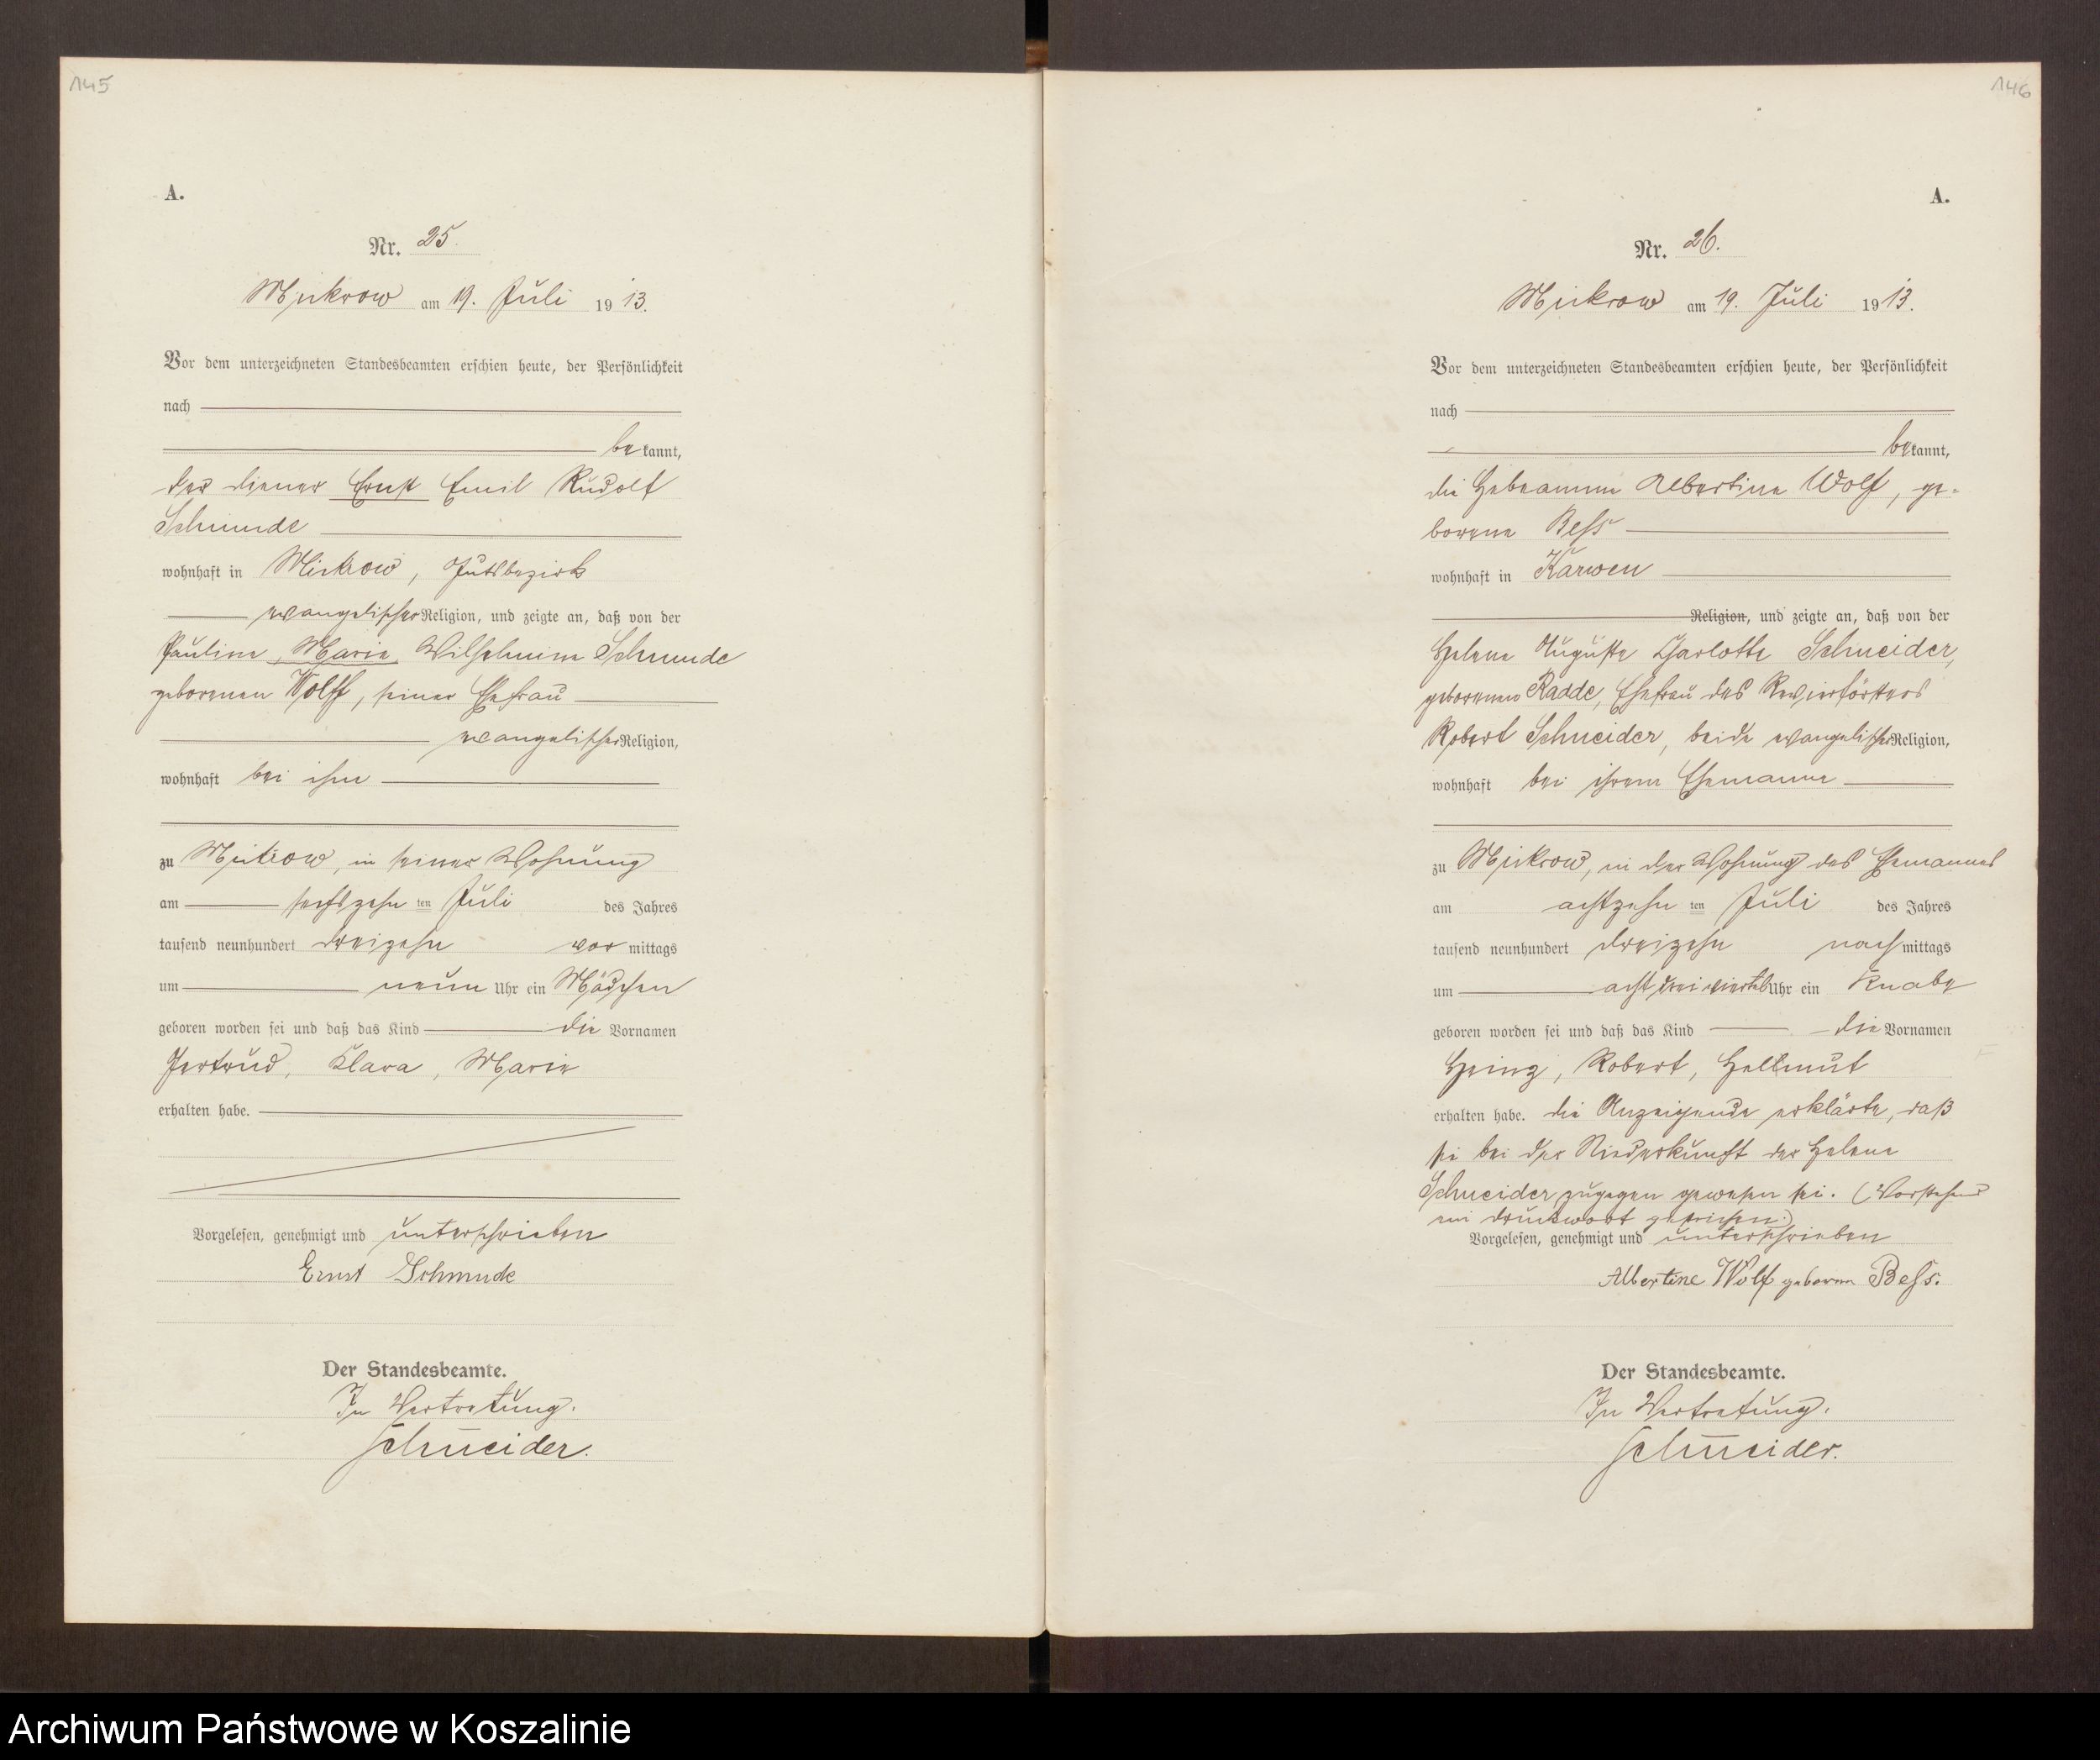 145
A.
Nr. 25.
Mickrow am 19. Juli 1913.
Vor dem unterzeichneten Standesbeamten erschien heute, der Persönlichkeit
nach
bekannt,
der Diener Ernst Emil Rudolf
Schmude
wohnhaft in Mickrow, Gutsbezirk
evangelischer Religion, und zeigte an, daß von der
Pauline, Marie, Wilhelmine Schmude
geborenen Wolff, seiner Ehefrau
evangelischer Religion,
wohnhaft bei ihm
zu Mickrow, in seiner Wohnung
am sechszehnten Juli des Jahres
tausend neunhundert dreizehn vormittags
um neun Uhr ein Mädchen
geboren worden sei und daß das Kind die Vornamen
Gertrud, Klara, Marie
erhalten habe.
Vorgelesen, genehmigt und unterschrieben
Ernst Schmude
Der Standesbeamte.
In Vertretung.
Schneider.
146
A.
Nr. 26.
Mickrow am 19. Juli 1913.
Vor dem unterzeichneten Standesbeamten erschien heute, der Persönlichkeit
nach
bekannt,
die Hebeamme Albertine Wolf, ge-
borene Beß
wohnhaft in Karwen
Religion, und zeigte an, daß von der
Helene Auguste Charlotte Schneider,
geborenen Radde, Ehefrau des Revierförsters
Robert Schneider, beide evangelischer Religion,
wohnhaft bei ihrem Ehemanne
zu Mickrow, in der Wohnung des Ehemannes
am achtzehnten Juli des Jahres
tausend neunhundert dreizehn nachmittags
um acht dreiviertel Uhr ein Knabe
geboren worden sei und daß das Kind die Vornamen
Heinz, Robert, Hellmut
erhalten habe. Die Anzeigende erklärte, daß
sie bei der Niederkunft der Helene
Schneider zugegen gewesen sei. (Vorstehend
ein Druckwort gestrichen.)
Vorgelesen, genehmigt und unterschrieben
Albertine Wolf geborene Beß.
Der Standesbeamte.
In Vertretung.
Schneider.
Archiwum Państwowe w Koszalinie